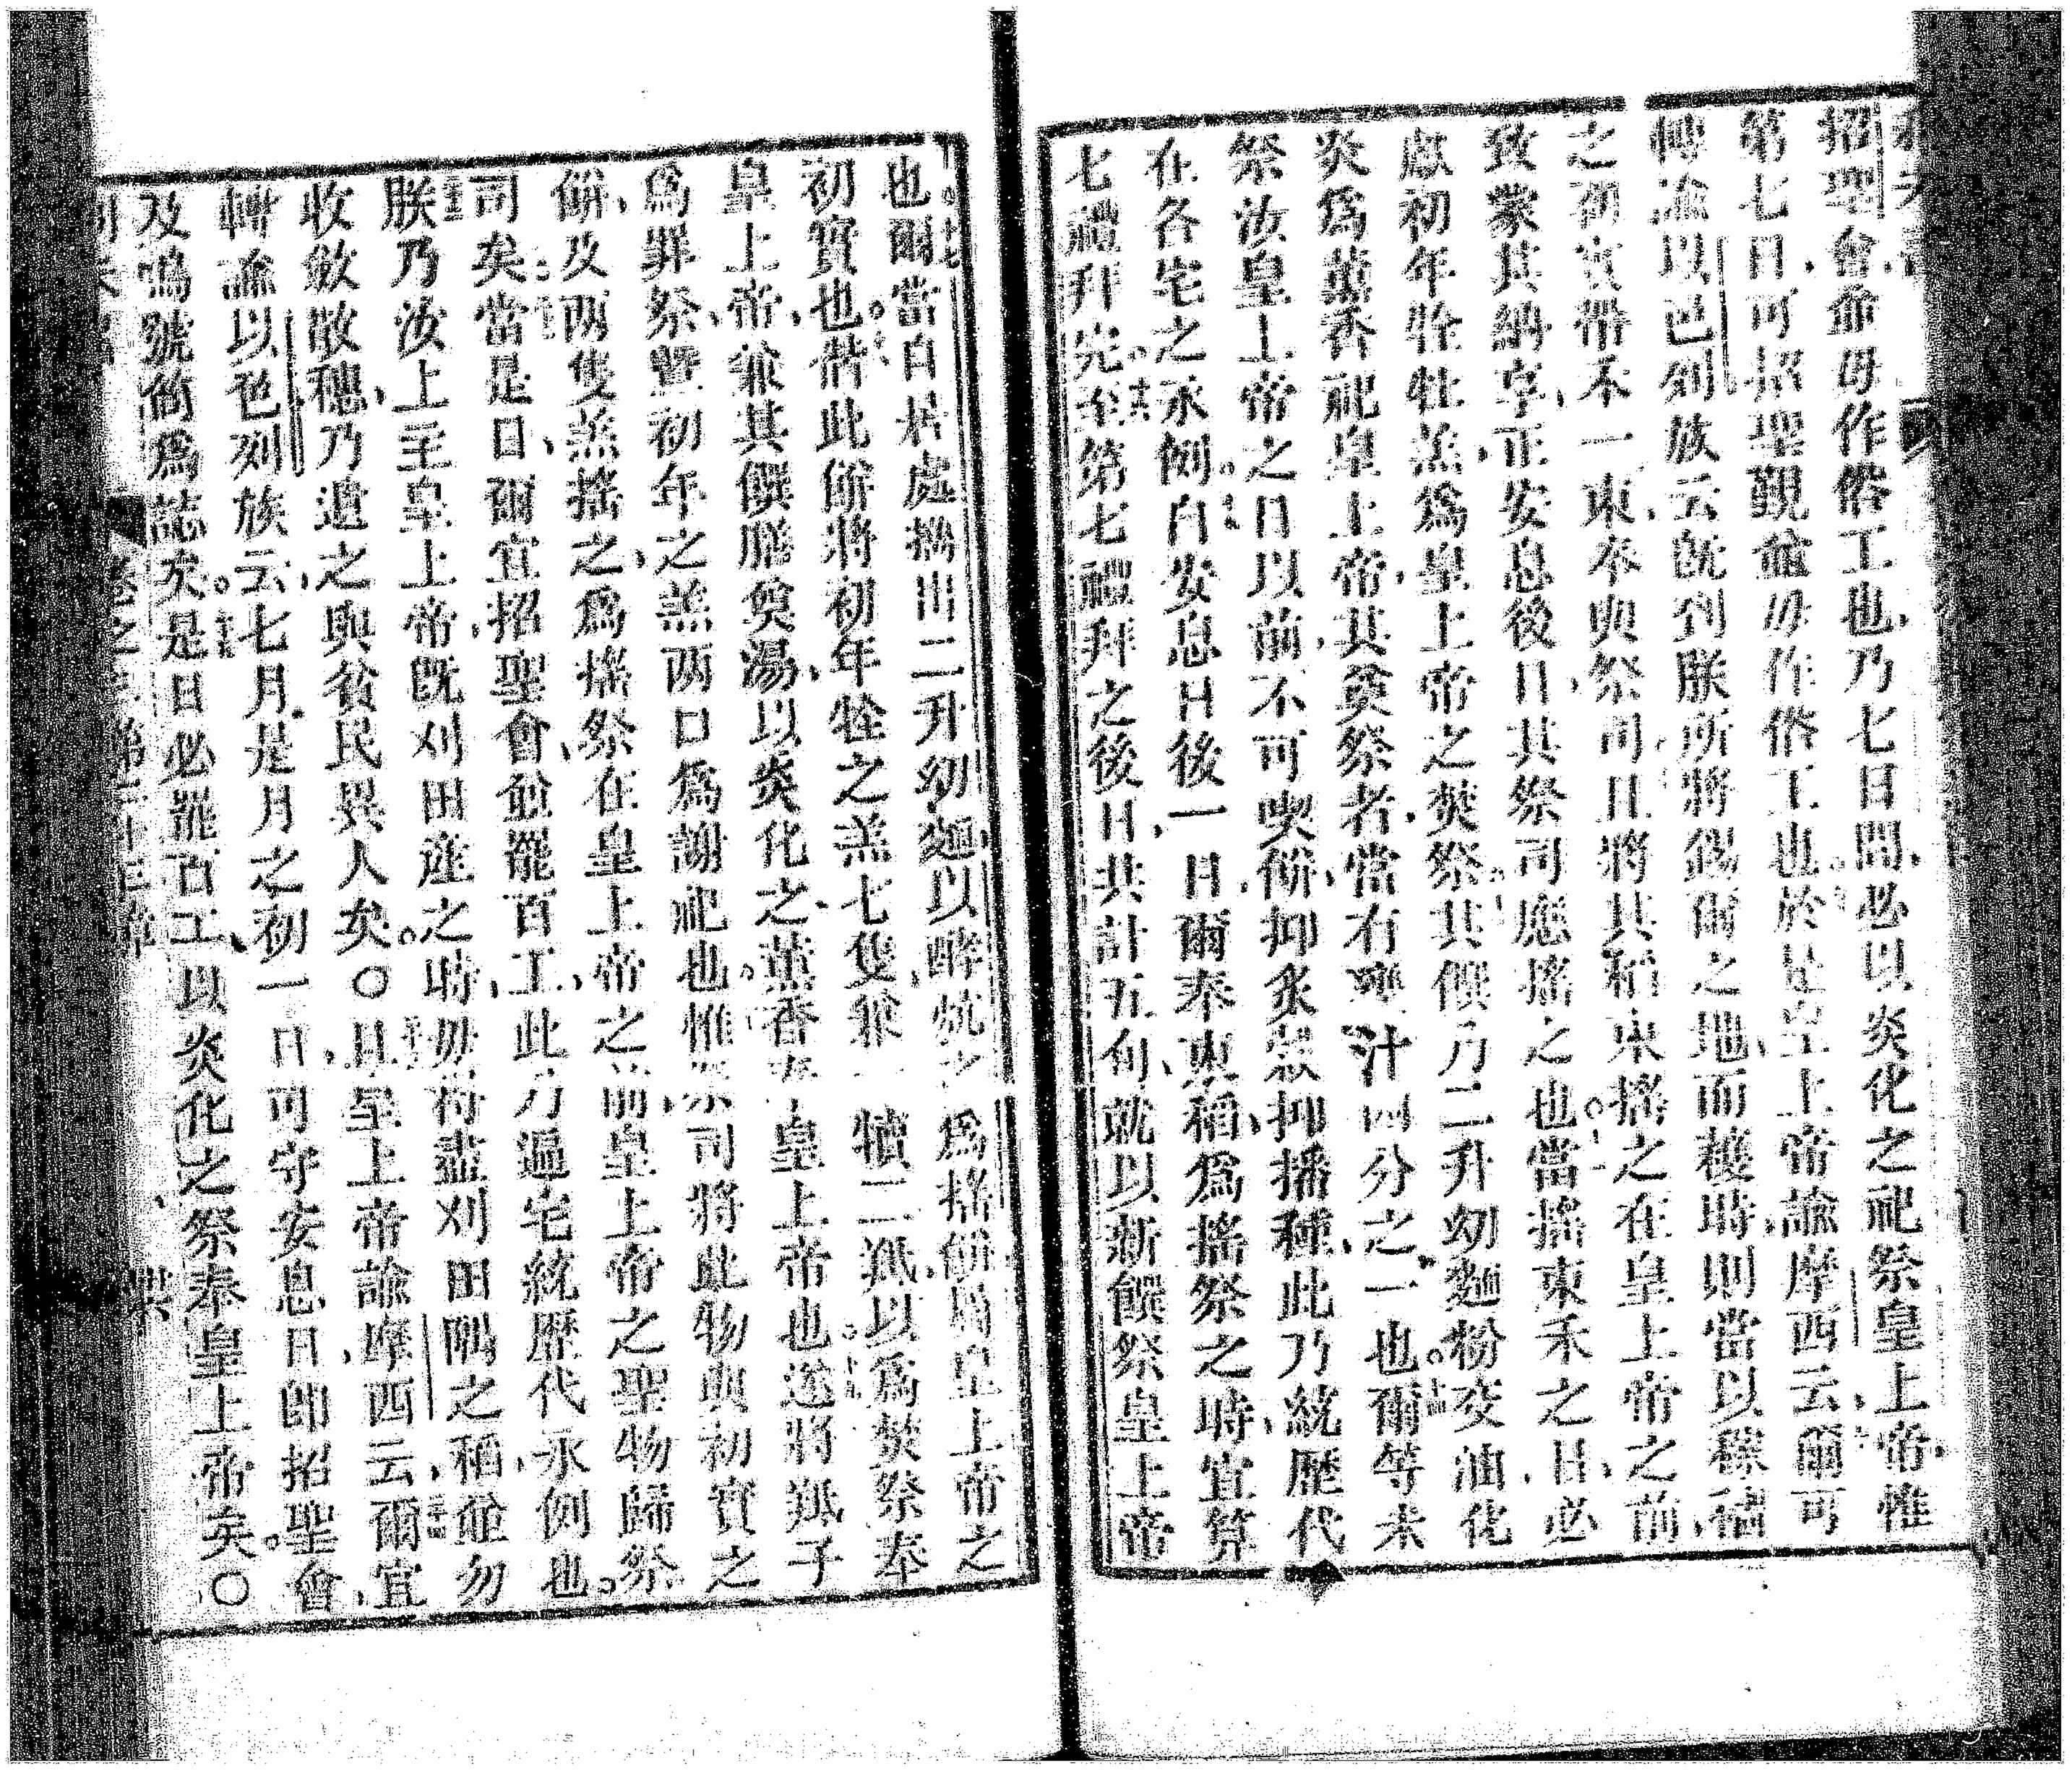 招聖會、爺毋作俗工也、乃七日間、必以炎化之祀祭皇上帝、惟
第七日、可招聖觀、並毋作俗工也。於是皇上帝諭摩西云、爾可
轉諭以色列族云、既到朕所將錫爾之地、而穫時、則當以稼穡
之初實帶禾一束、奉與祭司、且將其稻束搖之在皇上帝之前、
致蒙其納享、正安息後日、其祭司應搖之也。當搖束禾之日、必
獻初年牷牡羔、為皇上帝之焚祭。其饌乃二升幼麵粉交油化
炎為薰香祀皇上帝、其奠祭者、當有 汁四分之一也。爾等未
祭汝皇上帝之日以前、不可喫餅、抑炙 抑播種、此乃統歷代
在各宅之永例。自安息日後一日、爾奉束稻、為搖祭之時、宜算
七禮拜完。至第七禮拜之後日、共計五旬、就以新饌祭皇上帝
也。爾當自居處攜出二升幼麵、以酵炕之、為搖餅、屬皇上帝之
初實也。偕此餅將初年牷之羔七隻、兼一犢二羝、以為焚祭奉
皇上帝、兼其饌膳奠湯、以炎化之、薰香奉皇上帝也。遂將羝子
為罪祭、曁初年之羔兩口為謝祀也。惟祭司將此物與初實之
餅、及兩隻羔搖之、為搖祭在皇上帝之前、皇上帝之聖物歸祭
司矣。當是日、爾宜招聖會、並罷百工、此乃遍宅統歷代永例也。
朕乃汝上主皇上帝、既刈田產之時、毋得盡刈田隅之稻、並勿
收斂散穗、乃遺之與貧民異人矣。〇且皇上帝諭摩西云、爾宜
轉諭以色列族云、七月是月之初一日、可守安息日、即招聖會、
及鳴號筒為誌矣。是日必罷百工、以炎化之祭奉皇上帝矣。〇
卷之三 第二十三章